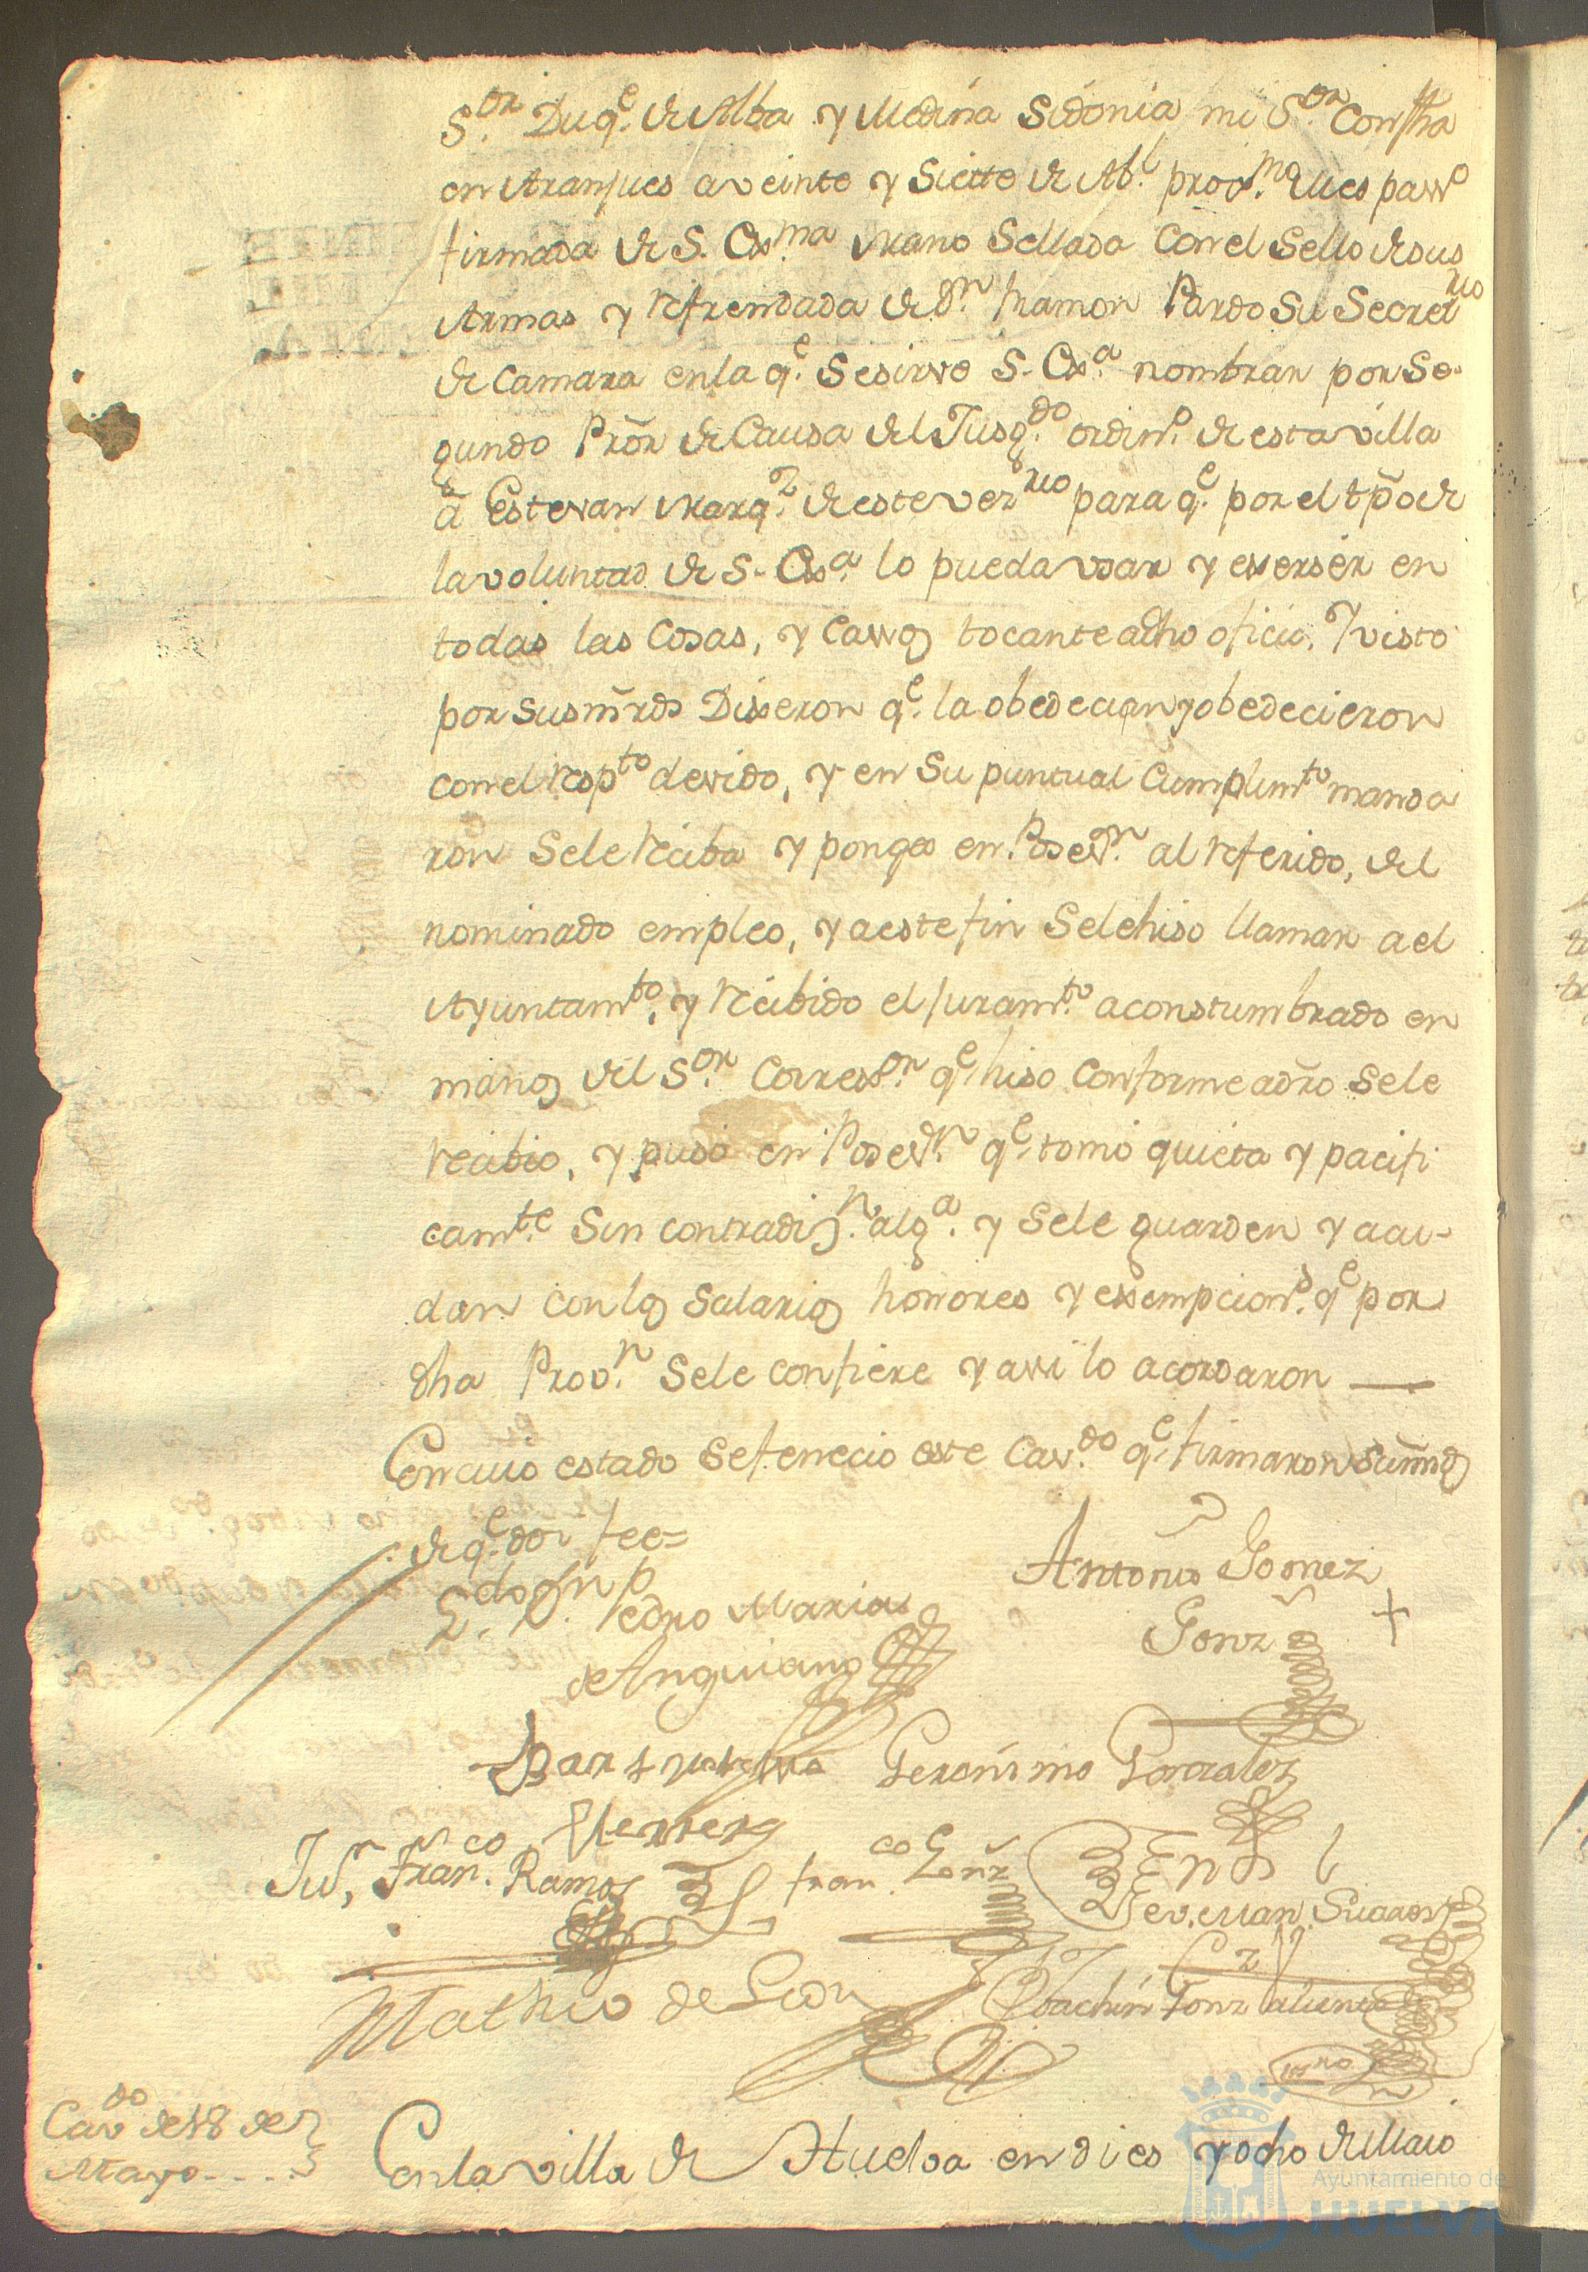 S.or Duq.e de Alba y Medina Sidonia mi S.or Con fha
en Aranjues a veinte y Siette de Ab.l prox.mo Mes passo
firmada de S. Ex.ma Mano Sellada Con el Sello de sus
Armas y refrendada de d.n Ramon Pardo Su Secret.rio
de Camara en la q.e Se sirve S. Ex.a nombrar por Se-
gundo Prõr de Causa del Jusg.do ordin.o de esta villa
â Estevan Marq.z de este vez.rio para q.e por el tp̃o de
la voluntad de S. Ex.a lo pueda vsar y exerser en
todas las Cosas, y Cassos tocante a dho oficio, Y visto
por sus mr̃ds Dixeron q.e la obedecian y obedecieron
con el resp.to devido, y en Su puntual Cumplim.to manda
ron Se le reciba y ponga en Poses.n al referido, del
nominado empleo, y a este fin Se le hiso llamar a el
Ayuntam.to, y recibido el juram.to aconstumbrado en
manos del S.or Correx.or q.e hiso Conforme a dr̃o Se le
recibio, y puso en Poses.n q.e tomó quieta y pacifi
cam.te Sin contradiz.n alg.a y Se le guarden y acu-
dan con los Salarios honores y exsempcion.s q.e por
dha Prov.n Se le confiere y assi lo acordaron —
En cuio estado Se fenecio este Cav.do q.e firmaron Sus mr̃ds
de q.e doi fee=
L.do d.n Pedro Maria
de Anguiano
Antonio Gomez
Gonz +
Herrera
Geronimo Gonzalez
Ju.n Fran.co Ramos
Fran.co Gonz
Man. Suares
Mathio de Leon
Joachin Gonz
Cav.do de 18 de
Mayo....
En la villa de Huelva en dies y ocho de Maio
Ayuntamiento de
HUELVA